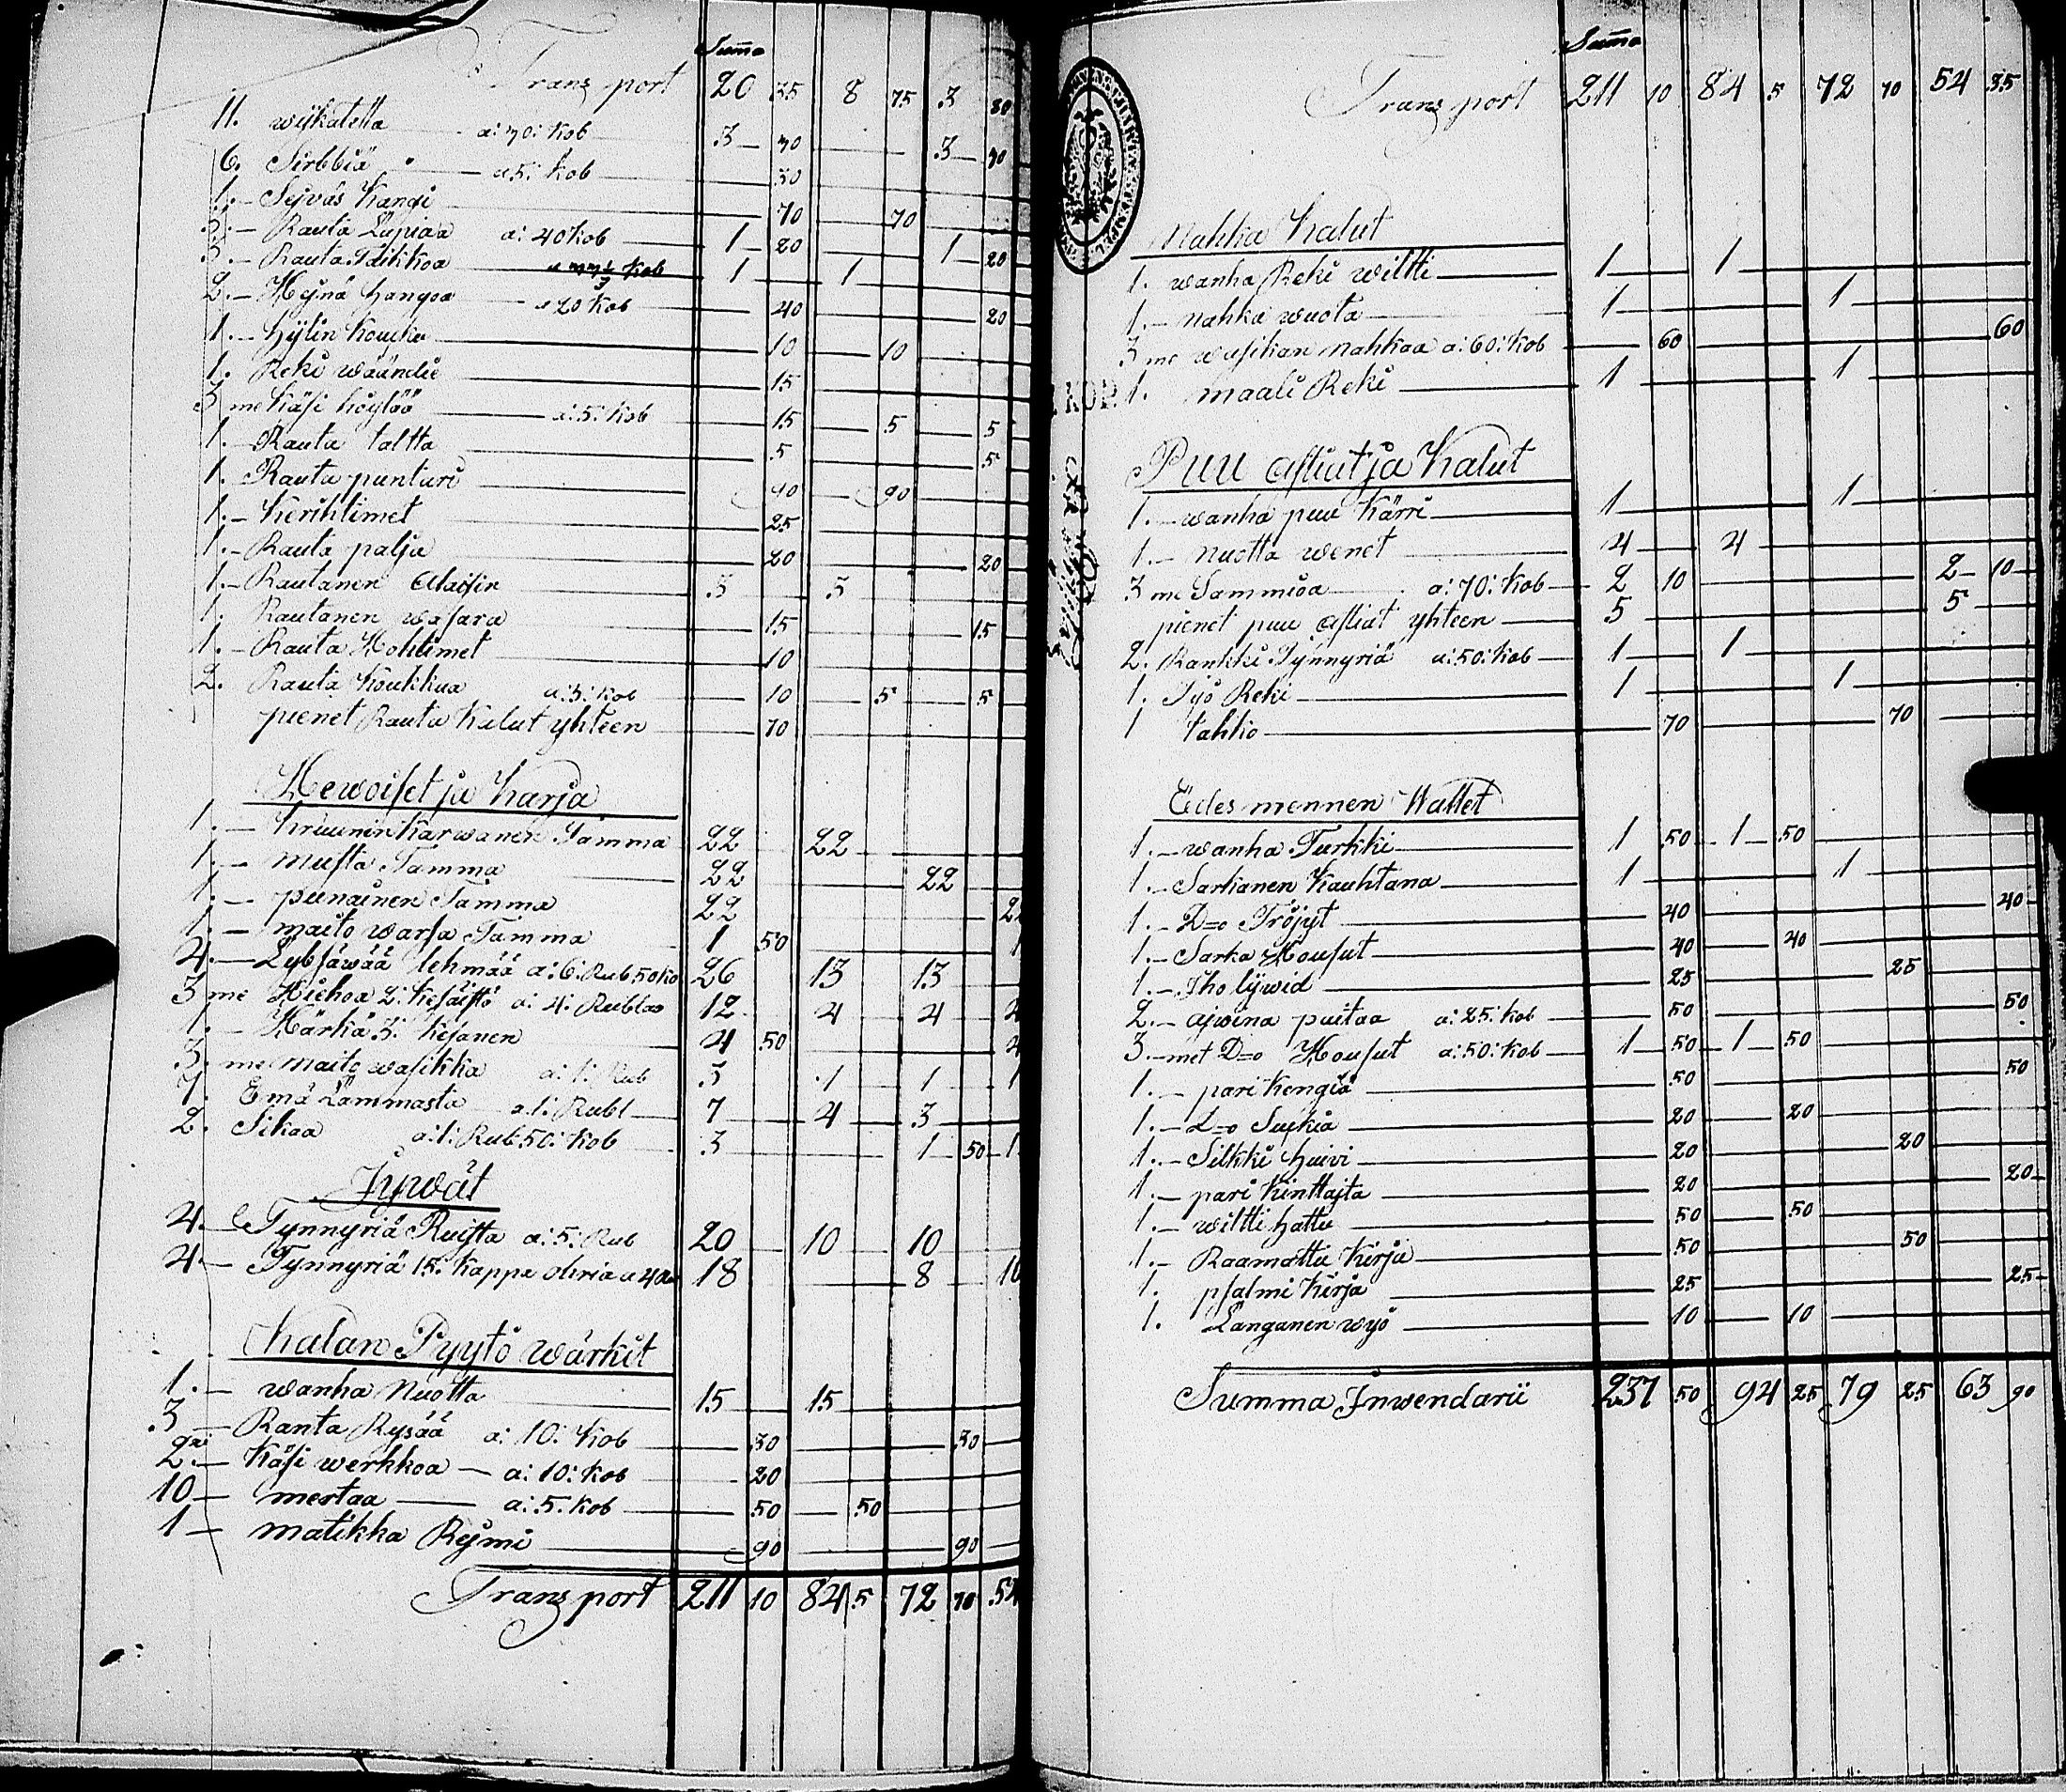 Summa
Transport 20 35 8 75 3 80
11. wijkatetta a:30: Kob 3 30 3 30
6. Sirbbiä a 5: Kob 30
1.- Seiväs Kangi 70 70
3.- Rauta Lapiaa a: 40 Kob 1 20 1 20
3.- Rauta Talikkoa Kob 1 1
2.- Heijnä hangoa a 20 Kob 40 20
1.- Hylin Koucku 10 10
1. Reki wäändie 15
3 me Käsi höylää a:5: Kob 15 5 5
1.- Rauta taltta 5 5
1. Rauta puntari 90 90
1.- Kerihtimet 25
1.- Rauta palja 20 20
1.- Rautanen Alaisin 3 3
1. Rautanen wasara 15 15
1.- Rauta Hohtimet 10
2. Rauta Koukkua a:5: Kob 10 5 5
pienet Rauta Kalut yhteen 70
Hewoiset ja Karja
1.- Kruunin Karwanen Tamma 22 22
1.- musta Tamma 22 22
1.- punainen Tamma 22 2
1.- maito warsa Tamma 1 50 1
4.- Lybsäwää lehmää a:6: Rub 50 Ko 26 13 13
3 me Hiehoa 2: Kesäistö a: 4: Rublaa 12 4 4 4
1.- Härkä 3: Kesänen 4 50 4
3. me maito wasikka a:1: Rub 3 1 1 1
7. Emä Lammasta a:1: Rubl 7 4 3
2. Sikaa a:1: Rub 50: Kob 3 1 50 1
Jywät
4.- Tynnyriä Ruista a:5: Rub 20 10 10
4.- Tynnyriä 15: Kappa ohria a 4 18 8 10
Kalan Pyytö wärkit
1.- wanha Nuotta 15 15
3 - Ranta Rysää a: 10: Kob 30 30
2.- Käsi werkkoa - a: 10: Kob 20
10 - mertaa a: 5. Kob 50 50
1 - matikka Rysmi 90 90
Transport 211 10 84 5 72 70 54
Summa
Transport 211 10 84 5 72 70 54 35
Nahka Kalut
1. wanha Reki wiltti 1 1
1.- nahka wuota 1 1
3 me wasikan nahkaa a:60: Kob 60 60
1. maali Reki 1 1
Puu Astiat ja Kalut
1.- wanha puu Kärri 1 1
1.- nuotta wenet 4 4
3 me Sammioa a:70: Kob 2 10 2 10
pienet puu Astiat yhteen 5 5
2. Rankki Tynnyriä a:50: Kob 1 1
1. Työ Reki 1 1
1 tahko 70 70
Edes mennen Wattet
1.- wanha Turkki 1 50 1 50
1.- Sarkanen Kauhtana 1 1
1.- D=o Tröjyt 40 40
1.- Sarka Housut 40 40
1.- Iho lijwid 25 25
2.- aiwina paitaa a:25: Kob 50 50
3.- met D=o Housut a:50: Kob 1 50 1 50
1.- pari Kengiä 50 50
1.- D=o Sukia 20 20
1.- Silkki huivi 20 20
1.- pari Kinttaita 20 20
1.- wiltti hattu 50 50
1.- Raamattu Kirja 50 50
1. psalmi Kirja 25 25
1. Langanen wyö 10 10
Summa Inwendarii 237 50 94 25 79 25 63 90